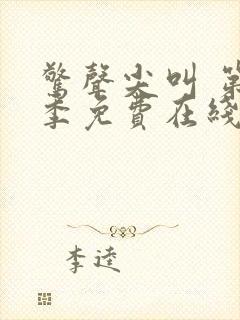 驚聲尖叫 第
季免費在綫
李逵